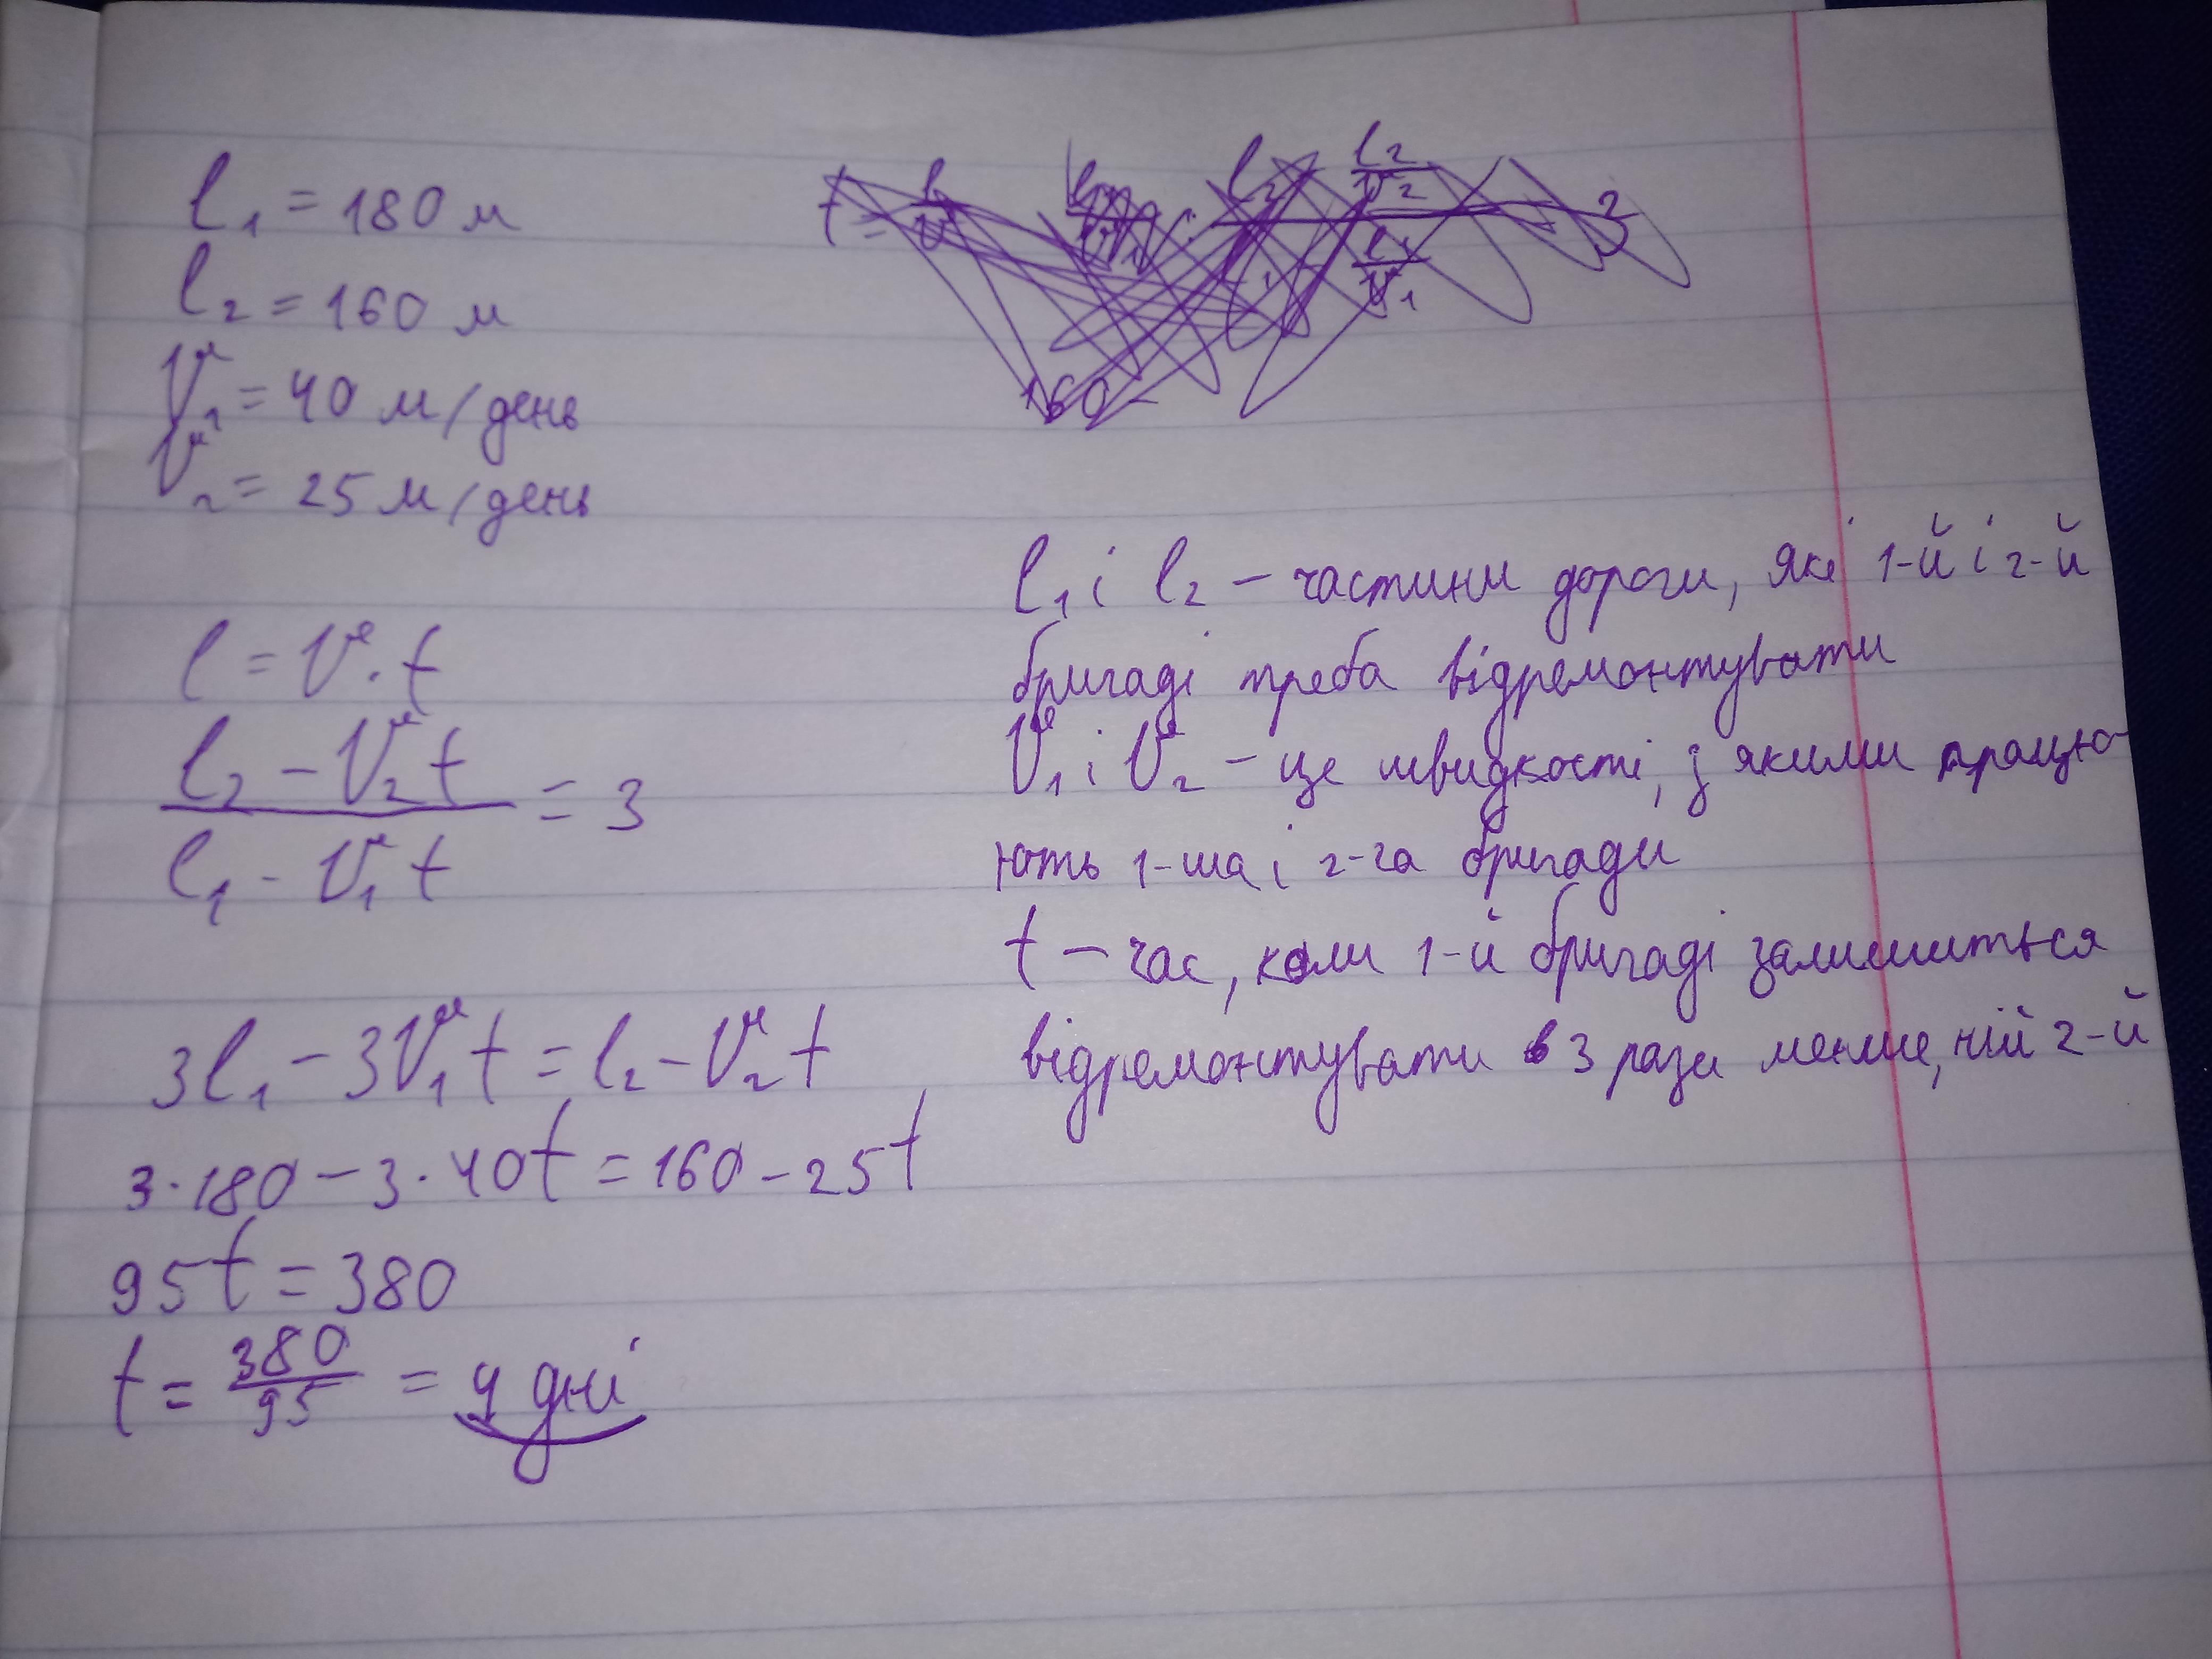 l₁ = 180 м
l₂ = 160 м
V₁ = 40 м/день
V₂ = 25 м/день
l = V · t
(l₂ - V₂t) / (l₁ - V₁t) = 3
3l₁ - 3V₁t = l₂ - V₂t
3·180 - 3·40t = 160 - 25t
95t = 380
t = 380/95 = 4 дні
160 -
l₁ і l₂ - частини дороги, які 1-й і 2-й
бригаді треба відремонтувати
V₁ і V₂ - це швидкості, з якими працю-
ють 1-ша і 2-га бригади
t - час, коли 1-й бригаді залишиться
відремонтувати в 3 рази менше, ній 2-й